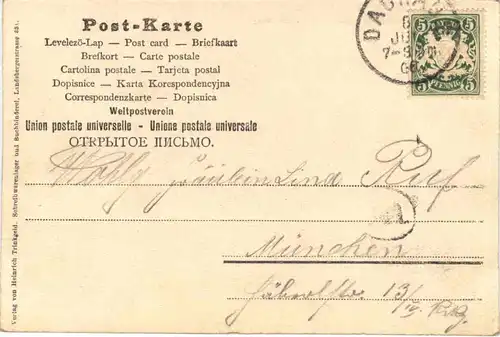 Post-Karte
Levelező-Lap — Post card — Briefkaart
Brefkort — Carte postale
Cartolina postale — Tarjeta postal
Dopisnice — Karta Korespondencyjna
Correspondenzkarte — Dopisnica
Weltpostverein
Union postale universelle - Unione postale universale
ОТКРЫТОЕ ПИСЬМО.
5 5
PFENNIG
5 5
7-8
Fräulein Lina Ruf
München
13/IV.
Verlag von Heinrich Trinkgeld, Schreibwarenlager und Buchbinderei, Landsbergerstrasse